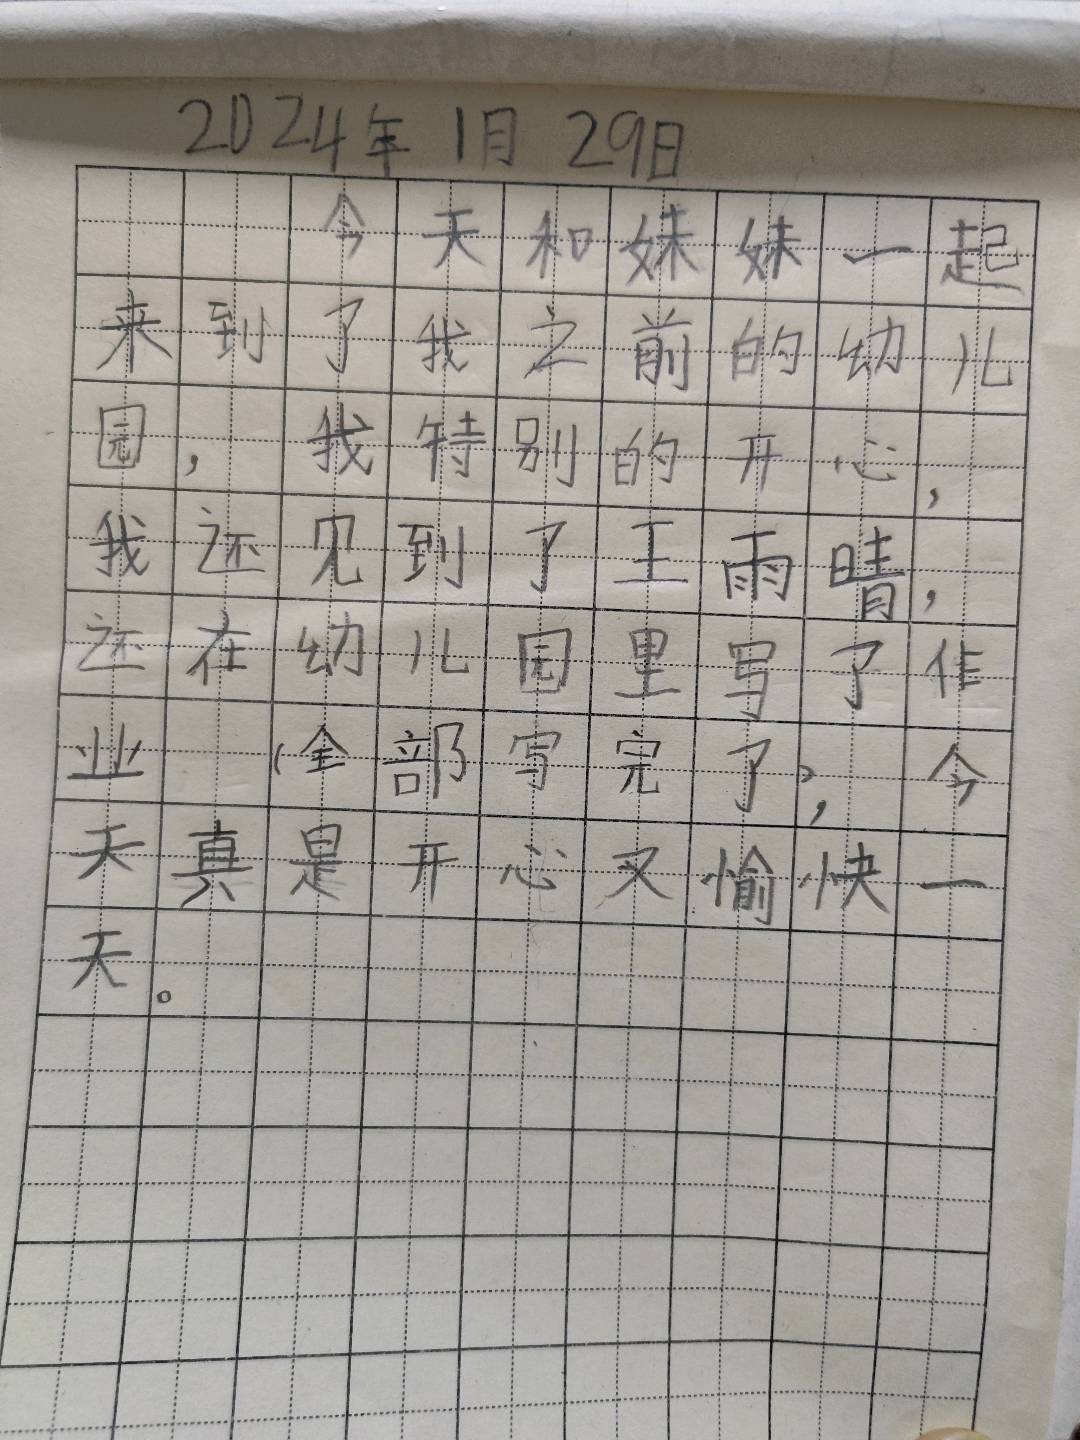 2024年 1月 29日
今天和妹妹一起
来到了我之前的幼儿
园，我特别的开心，
我还见到了王雨晴，
还在幼儿园里写了作
业 (全部写完了)，今
天真是开心又愉快一
天。